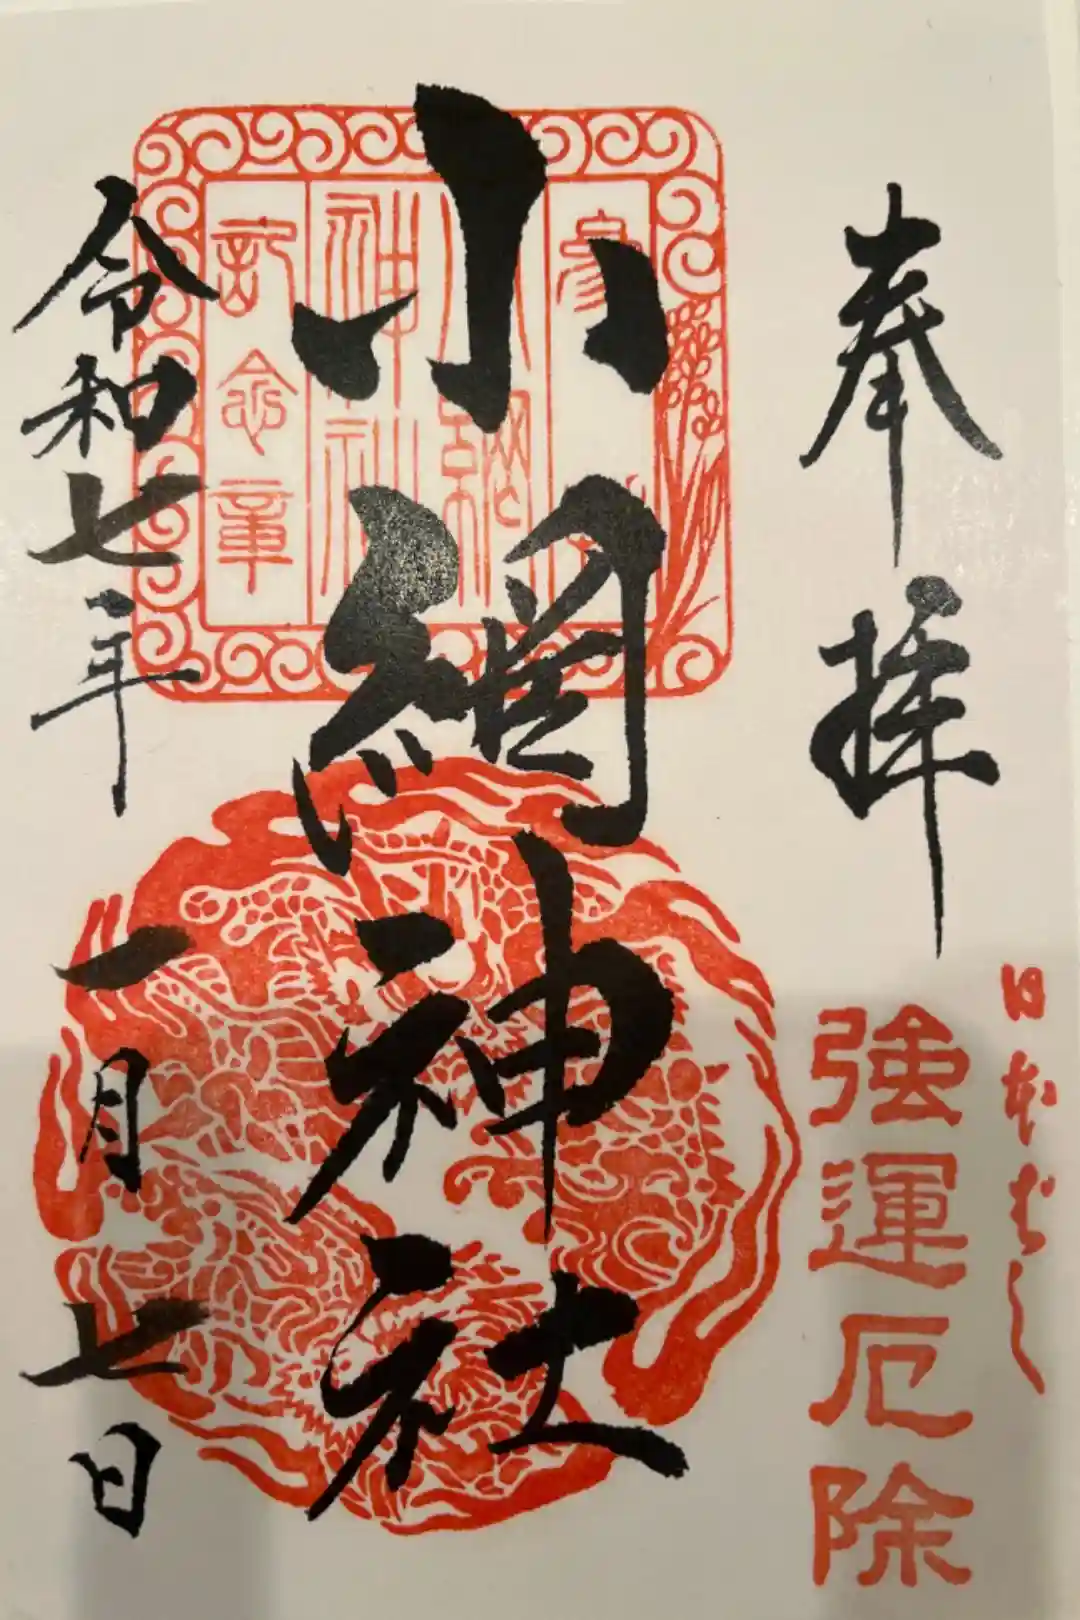 奉拝
日本ばし
強運厄除
小網神社
令和七年一月七日
小網
神社
記念章